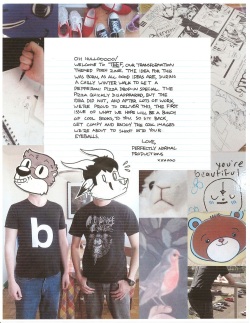 OH HULLOOOOO!
WELCOME TO "TF!", OUR TRANSFORMATION
THEMED FREE ZINE. THE IDEA FOR THIS
WAS BORN, AS ALL GOOD IDEAS ARE, DURING
A CHILLY WINTER WALK TO GET A
PEPPERONI PIZZA PREMIUM SPECIAL. THE
PIZZA QUICKLY DISAPPEARED, BUT THE
IDEA DID NOT, AND AFTER LOTS OF WORK
WE'RE PROUD TO DELIVER THIS, THE FIRST
ISSUE OF WHAT WE HOPE WILL BE A BUNCH
OF COOL BOOKS, TO YOU. SO SIT BACK,
GET COMFY AND ENJOY THE COOL IMAGES
WE'RE ABOUT TO SHOOT INTO YOUR
EYEBALLS.
LOVE,
PERFECTLY NORMAL
PRODUCTIONS
XOXOXO
you're
beautiful
b